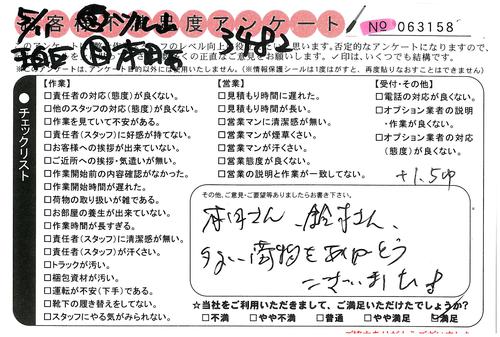 お客様不満足度アンケート
№ 063158
3482
このアンケートは
の正直なご意見をお願いします。✓印は、いくつでも結構です。
※このアンケートは、アンケート目的以外には使用いたしません。(※情報保護シールは1度はがすと、再度貼りなおすことはできません)
●チェックリスト
【作業】
□責任者の対応(態度)が良くない。
□他のスタッフの対応(態度)が良くない。
□作業を見ていて不安がある。
□責任者(スタッフ)に好感が持てない。
□お客様への挨拶が出来ていない。
□ご近所への挨拶・気遣いが無い。
□作業開始前の内容確認がなかった。
□作業開始時間が遅れた。
□荷物の取り扱いが雑である。
□お部屋の養生が出来ていない。
□作業時間が長すぎる。
□責任者(スタッフ)に清潔感が無い。
□責任者(スタッフ)が汗くさい。
□トラックが汚い。
□梱包資材が汚い。
□運転が不安(下手)である。
□靴下の履き替えをしてない。
□スタッフにやる気がみられない。
【営業】
□見積もり時間に遅れた。
□見積もり時間が長い。
□営業マンに清潔感が無い。
□営業マンが煙草くさい。
□営業マンが汗くさい。
□営業態度が良くない。
□営業の説明と作業が一致してない。
【受付・その他】
□電話の対応が良くない。
□オプション業者の説明
・作業が良くない。
□オプション業者の対応
(態度)が良くない。
その他、ご意見・ご要望等ありましたらお書き下さい。
鈴木さん、
荷物をありがとう
ございました
☆当社をご利用いただきまして、ご満足いただけたでしょうか?
□不満 □やや不満 □普通 □やや満足 □満足